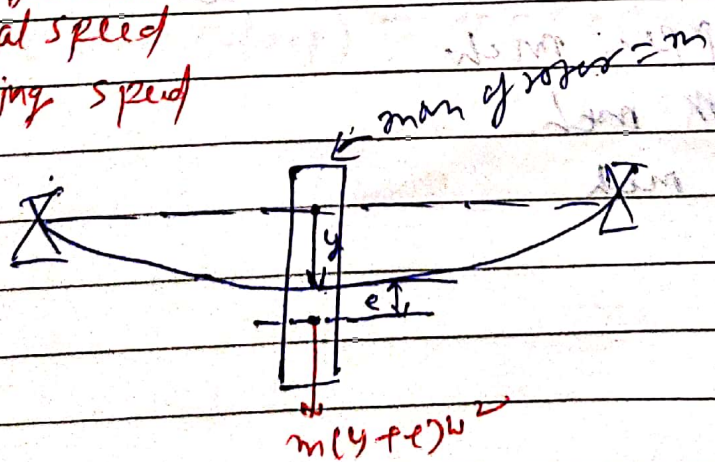 al speed
ing speed
mass of rotor = m
y
e
m(y+e)ω²